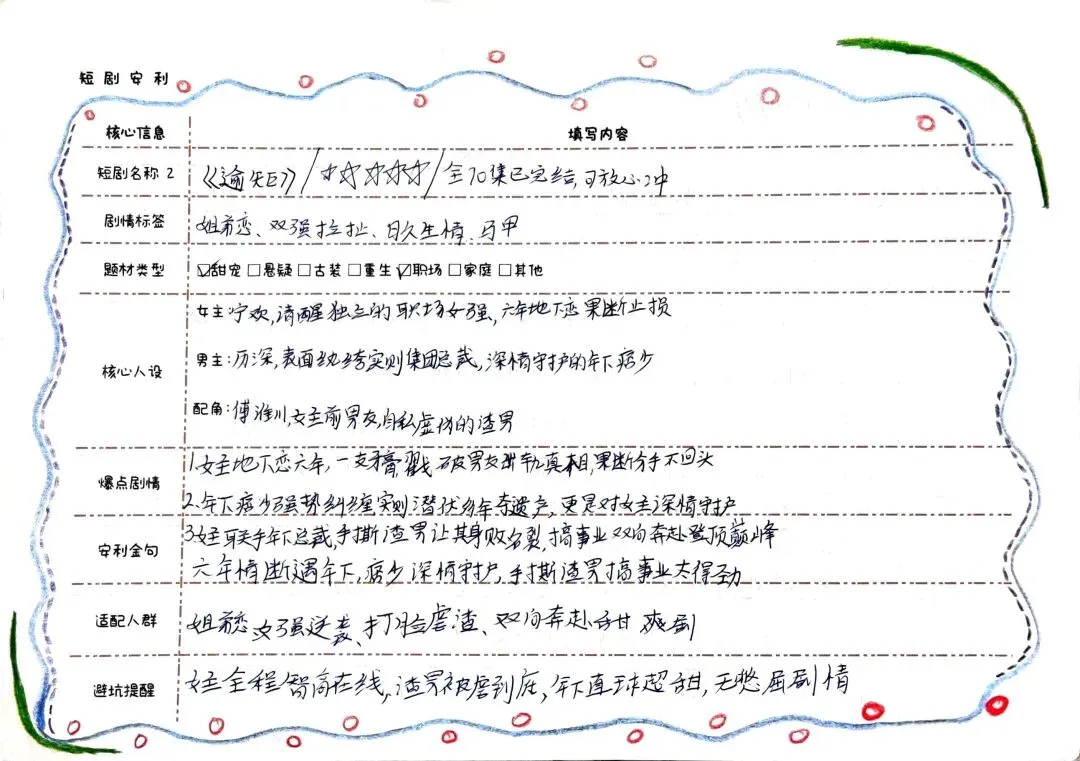 短剧安利
核心信息 填写内容
短剧名称 2 《逾矩》/☆☆☆☆☆/全70集已完结,可放心冲
剧情标签 姐弟恋、双强拉扯、日久生情、马甲
题材类型 ☑甜宠 ☐悬疑 ☐古装 ☐重生 ☑职场 ☐家庭 ☐其他
女主宁欢,清醒独立的职场女强,六年地下恋果断止损
核心人设 男主:历深,表面纨绔实则集团总裁,深情守护的年下痞少
配角:傅淮川,女主前男友,自私虚伪的渣男
1.女主地下恋六年,一支膏,戳破男友出轨真相,果断分手不回头
爆点剧情
2.年下痞少强势纠缠实则潜伏多年夺遗产,更是对女主深情守护
3.女主联手年下总裁,手撕渣男让其身败名裂,搞事业双向奔赴登顶巅峰
安利金句
六年情断遇年下,痞少深情守护,手撕渣男搞事业太得劲
适配人群 姐弟恋女强逆袭、打脸虐渣、双向奔赴甜爽剧
避坑提醒 女主全程智商在线,渣男被虐到底,年下直球超甜,无憋屈剧情